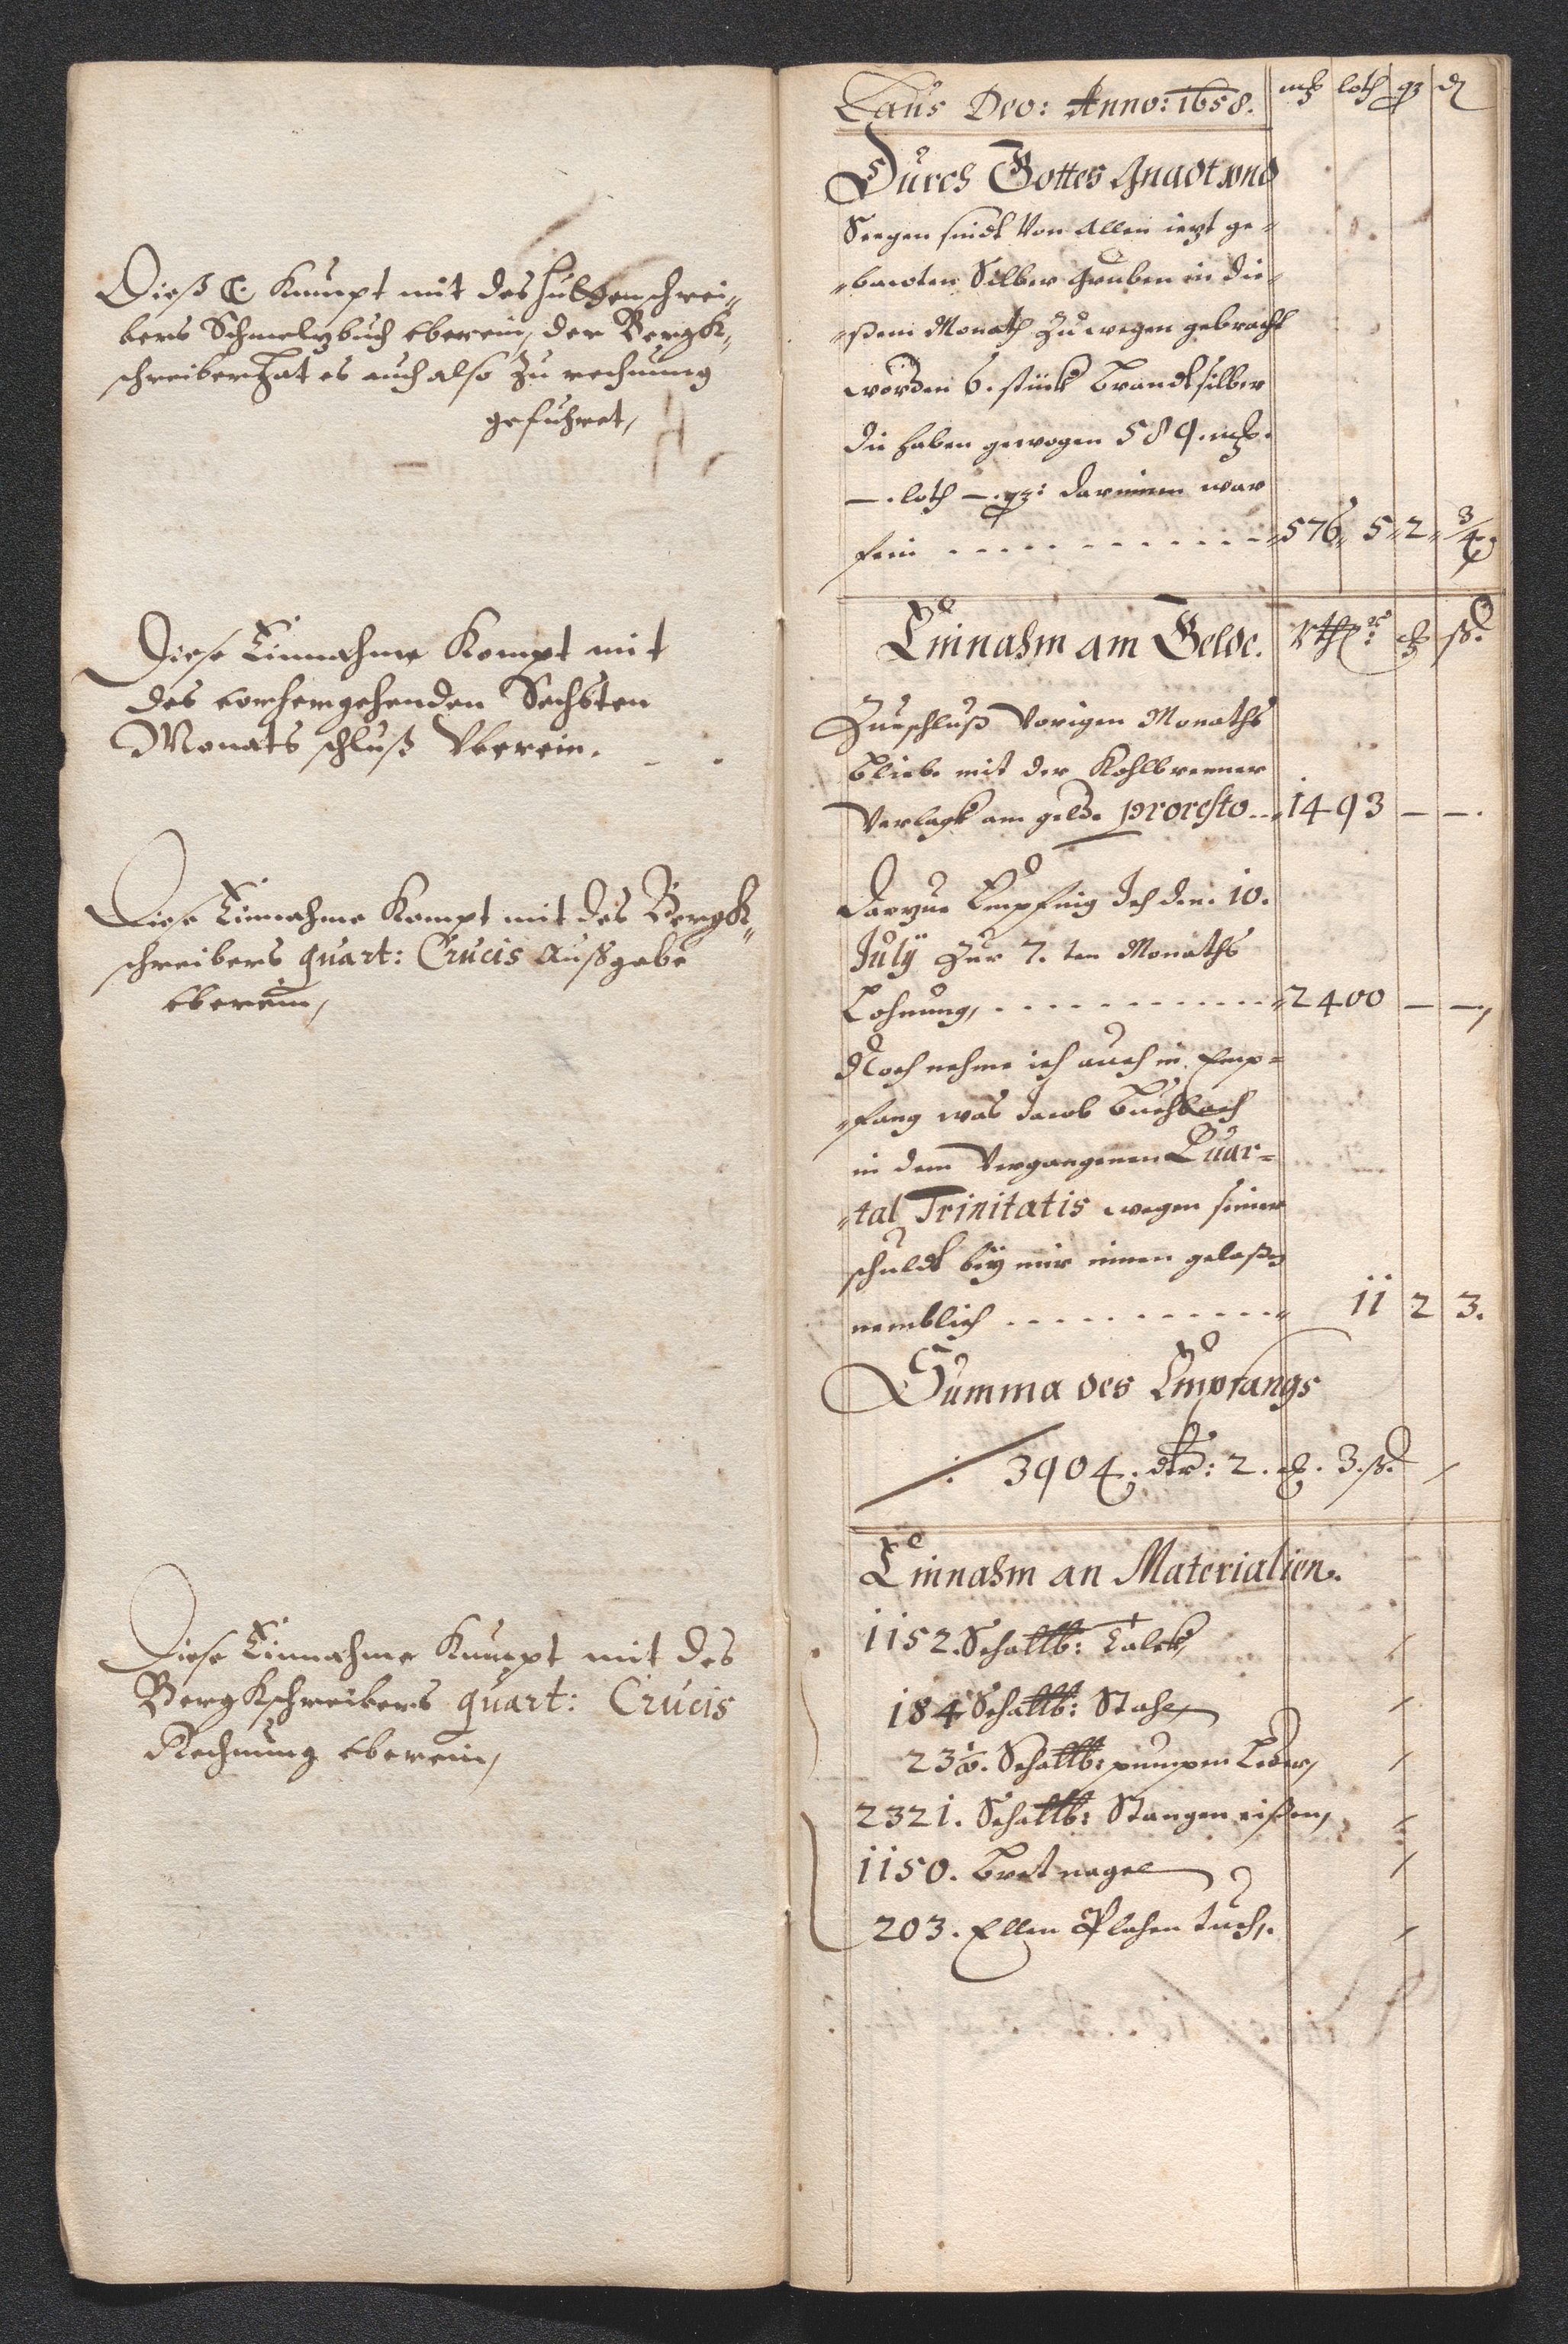 Dieß C. Kumpt mit des Hüttenschrei„
bers Schmeltzbuch vberein, der Bergk„
schreiber hat es auch also zu rechnung
gefuhret,
Diese Einnahme Kompt mit
des vorhergehenden Sechsten
Monats schluß Vberein.
Diese Einnahme Kompt mit des Bergk„
schreibers quart: Crucis Außgabe
vberein,
Diese Einnahme Kumpt mit des
Bergkschreibers quart: Crucis
Rechnung vberein,
Laus Deo: Anno: 1658. mk loth q d
Durch Gottes Gnadt vnd
Seegen sindt Von Allen ietzt ge„
„baweten Silber Gruben in die„
„ßem Monath Zu wegen gebracht
worden 6. stück Brandtsilber
die haben gewogen 589. mk.
—. loth —. q: darinnen war
fein - - - - - - „576„ 5„ 2„ 3/4
Einnahm am Gelde. Rthlr: ß
Zur schluß Vorigen Monaths
bliebe mit der Kohlbrenner
Verlagk am gelde pro resto - - „1493 — —.
Darzue Empfing Ich den. 10.
July Zur 7. ten Monaths
Lohnung, - - - - - - „2400 — —,
Noch nehme ich auch in Emp=
„fang was Jacob Buchbach
in dem Vergangenen Quar=
„tal Trinitatis wegen seiner
schuldt bey mir innen gelaßen
nemblich - - - - - - „ 11 2 3.
Summa des Empfangs
/: 3904. dlr: 2. 3. ß.
Einnahm an Materialien.
1152. Schallb: Talck
184 Schallb: Stahl
23½. Schallb: pumpen Leder,
2321. Schallb: Stangen eißen,
1150. Bretnagel
203. Ellen Plahen tuch.